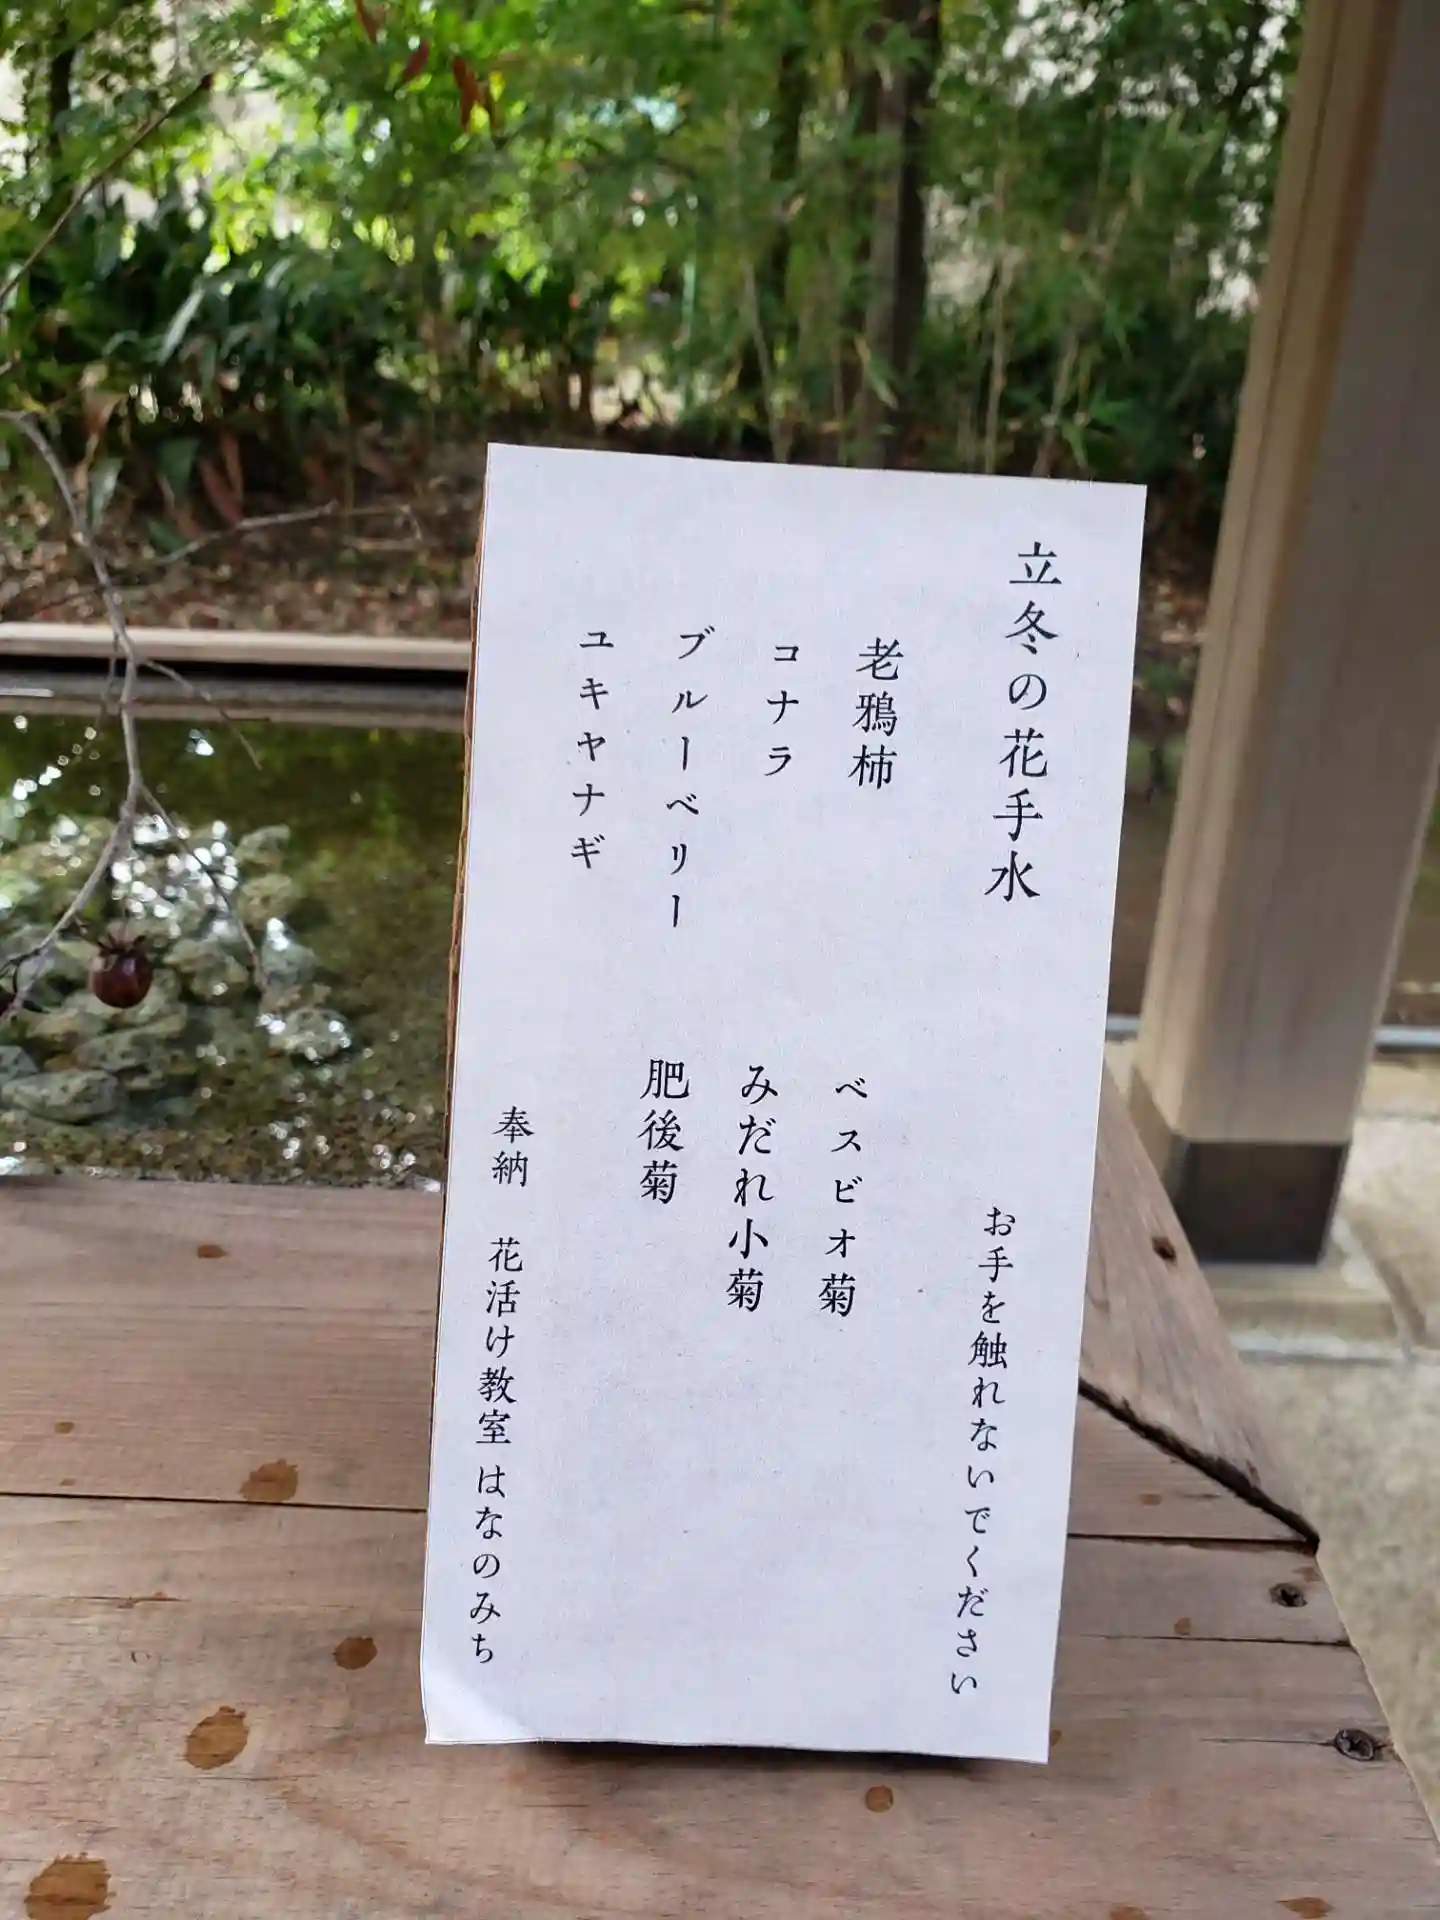 立冬の花手水
お手を触れないでください
老鴉柿
コナラ
ブルーベリー
ユキヤナギ
ベスビオ菊
みだれ小菊
肥後菊
奉納 花活け教室 はなのみち